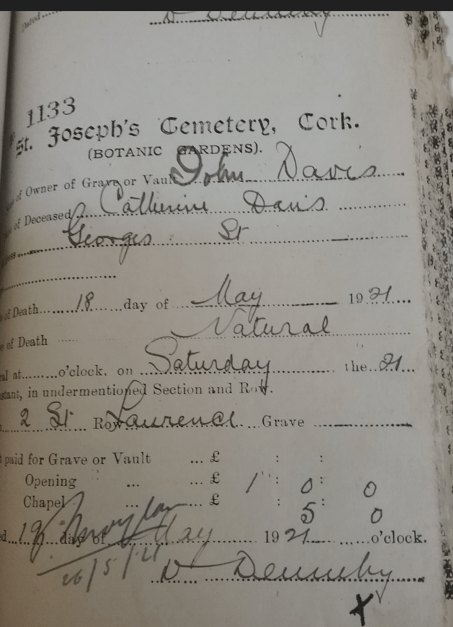 D Dennehy
1133
St. Joseph's Cemetery, Cork.
(BOTANIC GARDENS).
of Owner of Grave or Vault John Davis
of Deceased Catherine Davis
Georges St
of Death 18 day of May 1921
of Death Natural
al at o'clock, on Saturday the 21
stant, in undermentioned Section and Row.
2 St Row Laurence Grave
paid for Grave or Vault ... £ : :
Opening ... ... £ 1 : 0 : 0
Chapel ... £ : 5 : 0
d 19 day of May 1921 o'clock.
26/5/21
D Dennehy
X